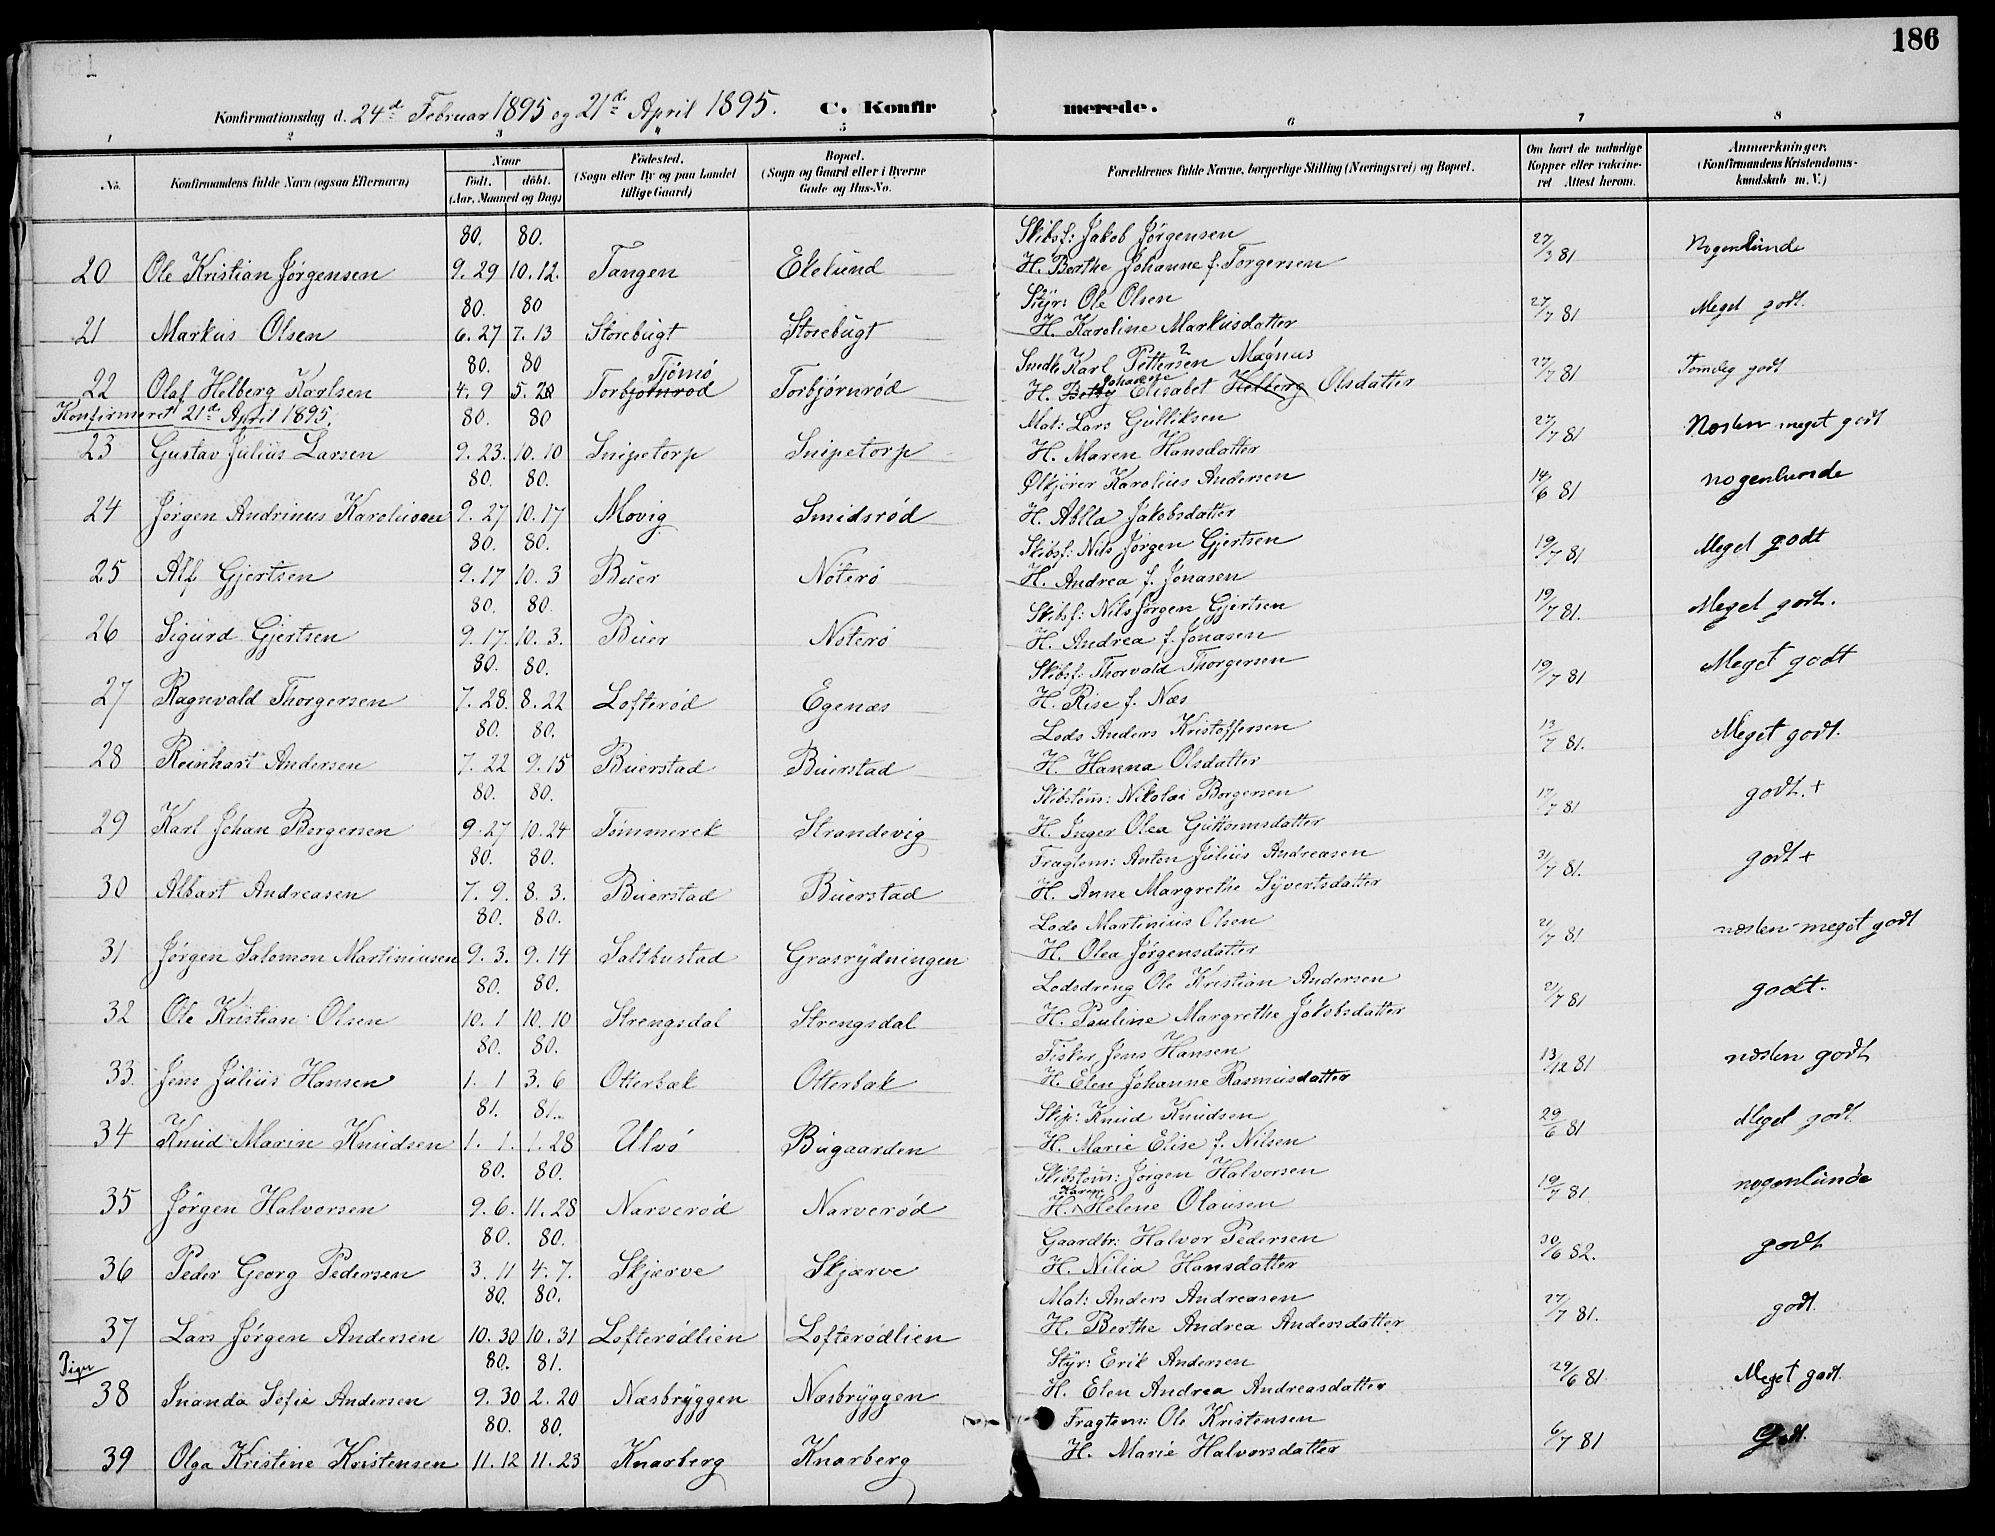 186
Konfirmationsdag d. 24de Februar 1895 og 21de April 1895. C. Konfirmerede.
1 2 3 4 5 6 7 8
No.
Konfirmandens fulde Navn (ogsaa Efternavn)
Naar
født. døbt.
(Aar, Maaned og Dag)
Fødested.
(Sogn eller By og paa Landet tillige Gaard)
Bopæl.
(Sogn og Gaard eller i Byerne Gade og Hus-No.
Forældrenes fulde Navne, borgerlige Stilling (Næringsvei) og Bopæl.
Om havt de naturlige Kopper eller vakcineret Attest herom.
Anmærkninger.
(Konfirmandens Kristendomskundskab m. V.)
80. 80. Skibsf: Jakob Jørgensen 27/3 81 Nogenlunde
20 Ole Kristian Jørgensen 9. 29 10. 12. Tangen Ekelund H. Berthe Johanne f. Torgersen
80. 80 Styr: Ole Olsen 27/7 81 Meget godt.
21 Markus Olsen 6. 27 7. 13 Storebugt Storebugt H. Karoline Markusdatter
80. 80 Tjømø Snedk Karl Pettersen Magnus 27/7 81 godt
22 Olaf Helberg Karlsen 4. 9 5. 20 Torbjørnrød Torbjørnrød H. Betty Johanne Elisabet Helberg Olsdatter
Konfirmeret 21de April 1895.
80. 80 Mat: Lars Gulliksen 27/7 81 Næsten meget godt
23 Gustav Julius Larsen 9. 23. 10. 10 Snipetorp Snipetorp H. Maren Hansdatter
80. 80. Ølkjører Karolius Andersen 14/6 81 nogenlunde
24 Jørgen Andrinus Karoliusen 9. 27 10. 17 Movig Smidsrød H. Abla Jakobsdatter
80. 80. Skibsf: Nils Jørgen Gjertsen 19/7 81 Meget godt
25 Alf Gjertsen 9. 17 10. 3 Buer Nøterø H. Andrea f. Jonasen
80. 80. Skibsf: Nils Jørgen Gjertsen 19/7 81. Meget godt.
26 Sigurd Gjertsen 9. 17. 10. 3. Buer Nøterø H. Andrea f. Jonasen
80. 80. Skibsf: Thorvald Thorgersen 19/7 81 Meget godt
27 Ragnvald Thorgersen 7. 28. 8. 22 Lofterød Egenæs H. Rise f. Næs
80. 80. Lods Anders Kristoffersen 13/7 81. Meget godt.
28 Reinhart Andersen 7. 22 9. 15 Buerstad Buerstad H. Hanna Olsdatter
80. 80. Skibstøm: Nikolai Borgersen 17/7 81 godt. +
29 Karl Johan Borgersen 9. 27 10. 24 Tømmerek Strandevig H. Inger Olea Guttormsdatter
80. 80. Fragtem: Anton Julius Andreasen 3/7 81. godt +
30 Albart Andreasen 7. 9. 8. 3. Buerstad Buerstad H. Anne Margrethe Syvertsdatter
80. 80. Lods Martinius Olsen 21/7 81 næsten meget godt
31 Jørgen Salomon Martiniusen 9. 3. 9. 14 Saltbustad Græsrydningen H. Olea Jørgensdatter
80. 80. Lodsdreng Ole Kristian Andersen 21/7 81 godt.
32 Ole Kristian Olsen 10. 1 10. 10 Strengsdal Strengsdal H. Pauline Margrethe Jakobsdatter
80. 80. Fisker Jens Hansen 13/12 81 næsten godt
33. Jens Julius Hansen 1. 1 3. 6 Otterbæk Otterbæk H. Elen Johanne Rasmusdatter
81. 81. Skip: Knud Knudsen 29/6 81 Meget godt.
34 Knud Marin Knudsen 1. 1. 1. 28 Ulvø Bugaarden H. Marie Elise f. Nilsen
80. 80. Skibstøm: Jørgen Halvorsen 19/7 81. nogenlunde
35 Jørgen Halvorsen 9. 6. 11. 28 Narverød Narverød H. Karen Helene Olausen
80. 80. Gaardbr: Halvor Pedersen 30/6 82. godt
36 Peder Georg Pedersen 3. 11 4. 7. Skjærve Skjærve H. Nilia Hansdatter
80. 80. Mat: Anders Andreasen 27/7 81. godt.
37 Lars Jørgen Andersen 10. 30 10. 31 Lofterødlien Lofterødlien H. Berthe Andrea Andersdatter
Piger
80. 81. Styr: Erik Andersen 29/6 81 Meget godt.
38 Inanda Sofie Andersen 9. 30 2. 20 Næsbryggen Næsbryggen H. Elen Andrea Andreasdatter
80. 80. Fragtem: Ole Kristensen 6/7 81 Godt.
39 Olga Kristine Kristensen 11. 12 11. 23 Knarberg Knarberg H. Marie Halvorsdatter